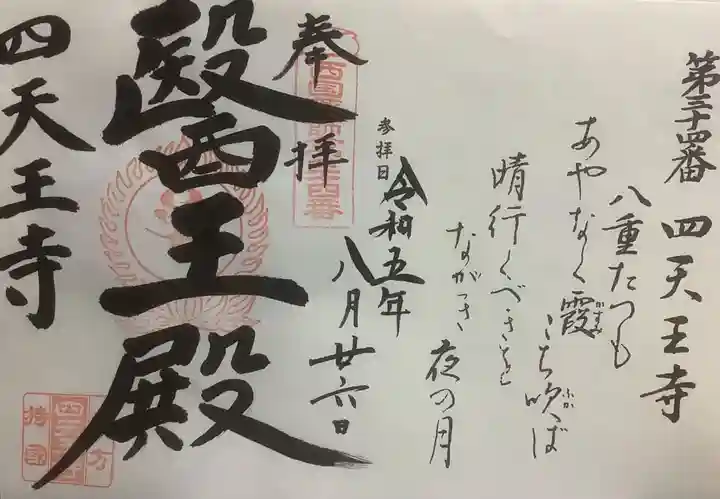 第三十四番 四天王寺
八重たつも
あやなく霞
こち吹ば
晴行くべきそら
ながつき 夜の月
参拝日
令和五年
八月廿六日
奉拝
西国薬師第三十四番
醫王殿
四天王寺